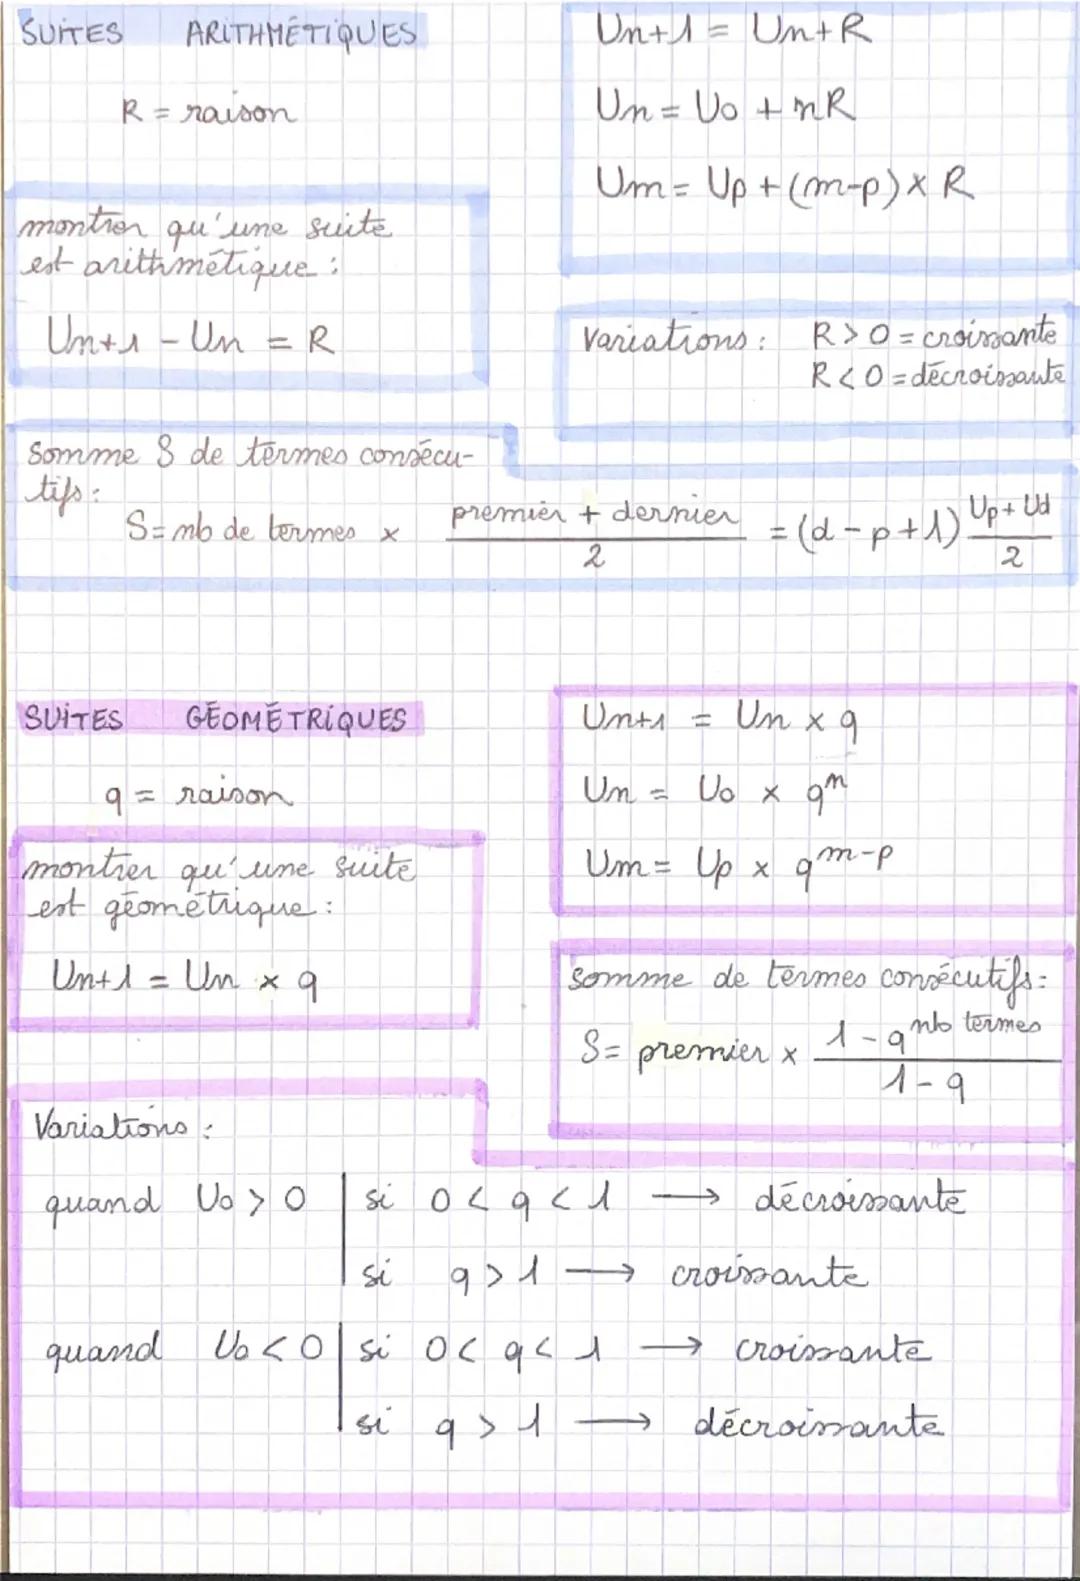 SUITES ARITHMÉTIQUES
R = raison
Un+1 = Un+R
Un = U0 + nR
Um = Up + (m-p) x R
montrer qu'une suite
est arithmétique :
Un+1 - Un = R
Variations : R > 0 = croissante
R < 0 = décroissante
Somme S de termes consécu-
tifs :
S = nb de termes x (premier + dernier)/2 = (d - p + 1) (Up + Ud)/2
SUITES GÉOMÉTRIQUES
q = raison
Un+1 = Un x q
Un = U0 x q^n
Um = Up x q^m-p
montrer qu'une suite
est géométrique :
Un+1 = Un x q
Somme de termes consécutifs :
S = premier x (1 - q^nb termes)/(1 - q)
Variations :
quand U0 > 0 | si 0 < q < 1 → décroissante
si q > 1 → croissante
quand U0 < 0 | si 0 < q < 1 → croissante
si q > 1 → décroissante